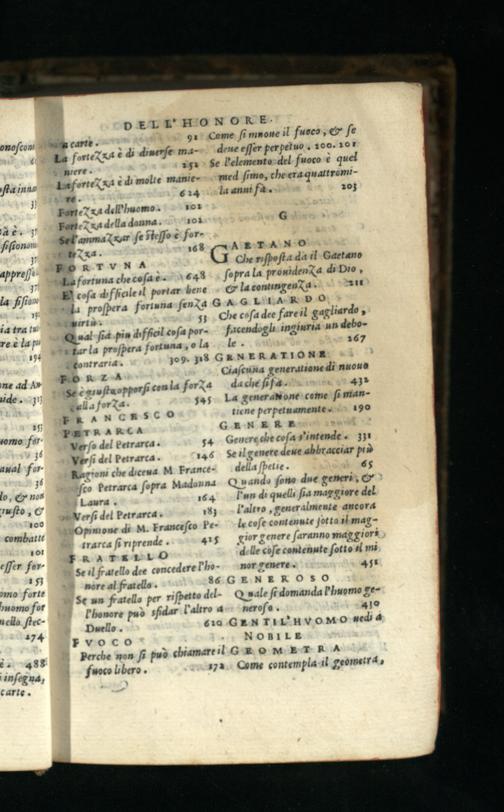 DELL'HONORE.
a carte. 91
La fortezza è di diuerse ma-
niere. 252
La fortezza è di molte manie-
re. 624
Fortezza dell'huomo. 102
Fortezza della donna. 102
Se l'ammazzar se stesso è for-
tezza. 168
FORTVNA
La fortuna che cosa è. 648
E' cosa difficile il portar bene
la prospera fortuna senza
uirtù. 53
Qual sia piu difficil cosa por-
tar la prospera fortuna, o la
contraria. 309. 318
FORZA
Se è giusto opporsi con la forza
alla forza. 545
FRANCESCO
PETRARCA
Verso del Petrarca. 54
Versi del Petrarca. 146
Ragioni che diceua M. France-
sco Petrarca sopra Madonna
Laura. 164
Versi del Petrarca. 183
Opinione di M. Francesco Pe-
trarca si riprende. 425
FRATELLO
Se il fratello dee concedere l'ho-
nore al fratello. 86
Se un fratello per rispetto del-
l'honore può sfidar l'altro a
Duello. 620
FVOCO
Perche non si può chiamare il
fuoco libero. 172
Come si muoue il fuoco, & se
deue esser perpetuo. 200. 201
Se l'elemento del fuoco è quel
med simo, che era quattromi-
la anni fa. 203
G
GAETANO
Che risposta da il Gaetano
sopra la prouidenza di Dio,
& la contingenza. 211
GAGLIARDO
Che cosa dee fare il gagliardo,
facendogli ingiuria un debo-
le. 267
GENERATIONE
Ciascuna generatione di nuouo
da che si fa. 432
La generatione come si man-
tiene perpetuamente. 190
GENERE
Genere che cosa s'intende. 331
Se il genere deue abbracciar più
della spetie. 65
Quando sono due generi, &
l'un di quelli sia maggiore del
l'altro, generalmente ancora
le cose contenute sotto il mag-
gior genere saranno maggiori
delle cose contenute sotto il mi
nor genere. 451
GENEROSO
Quale si domanda l'huomo ge-
neroso. 430
GENTIL'HVOMO uedi a
NOBILE
GEOMETRA
Come contempla il geometra,